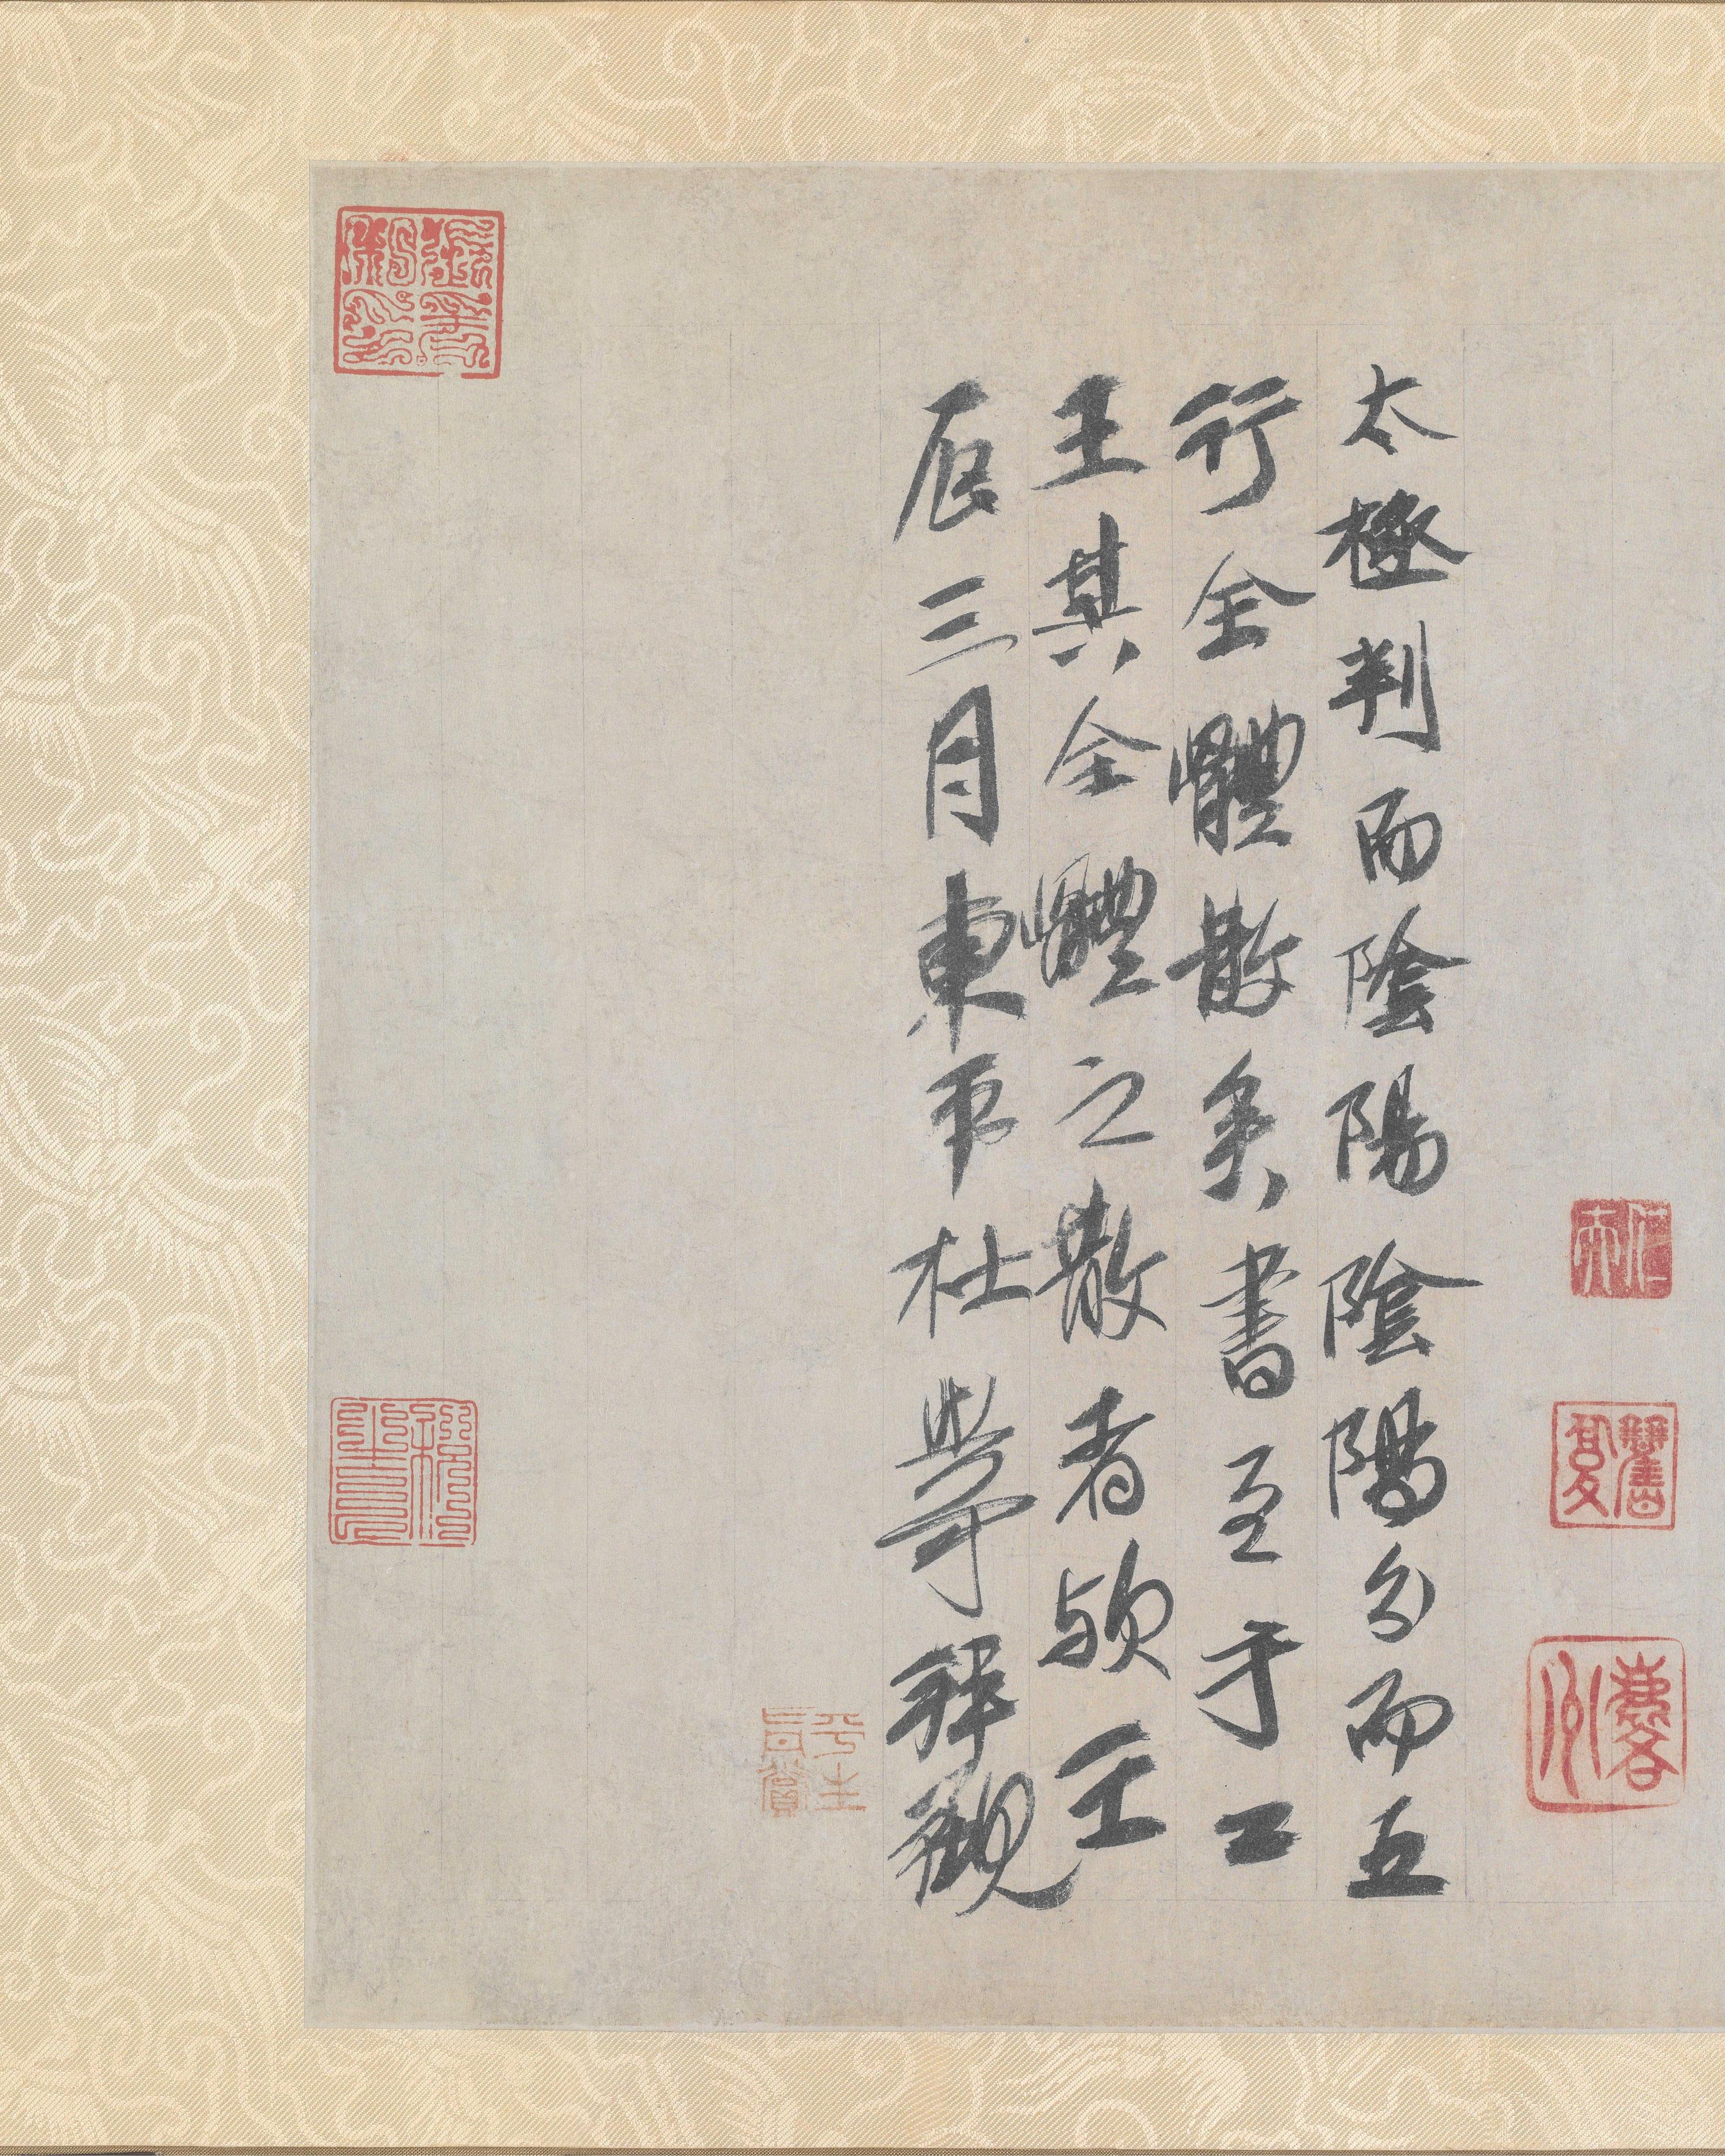 太極判而陰陽陰陽分而五
行全體散矣書至于二
王其全體之散者歟壬
辰三月東平杜
拜觀
平生
真賞